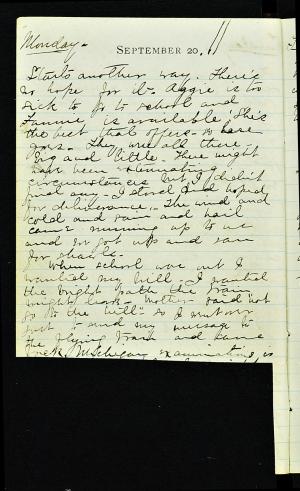 Monday -
SEPTEMBER 20. 11
Starts another way. There's
no hope for it - Aggie is too
sick to go to school and
Fannie is available "She's
the best that offers - so here
goes. They were all there -
big and little. There might
have been extenuating
circumstances but I didn't
find any - I stood and hoped
for deliverance. The wind and
cold and rain and hail
came running up to us
and so got up and ran
for shade.
When school was out I
wanted my hill. I wanted
the bright path the train
might leave - Mother said not
go to the hill - so I must
just send my message to
the flying train and came
back. Michigan examination, is